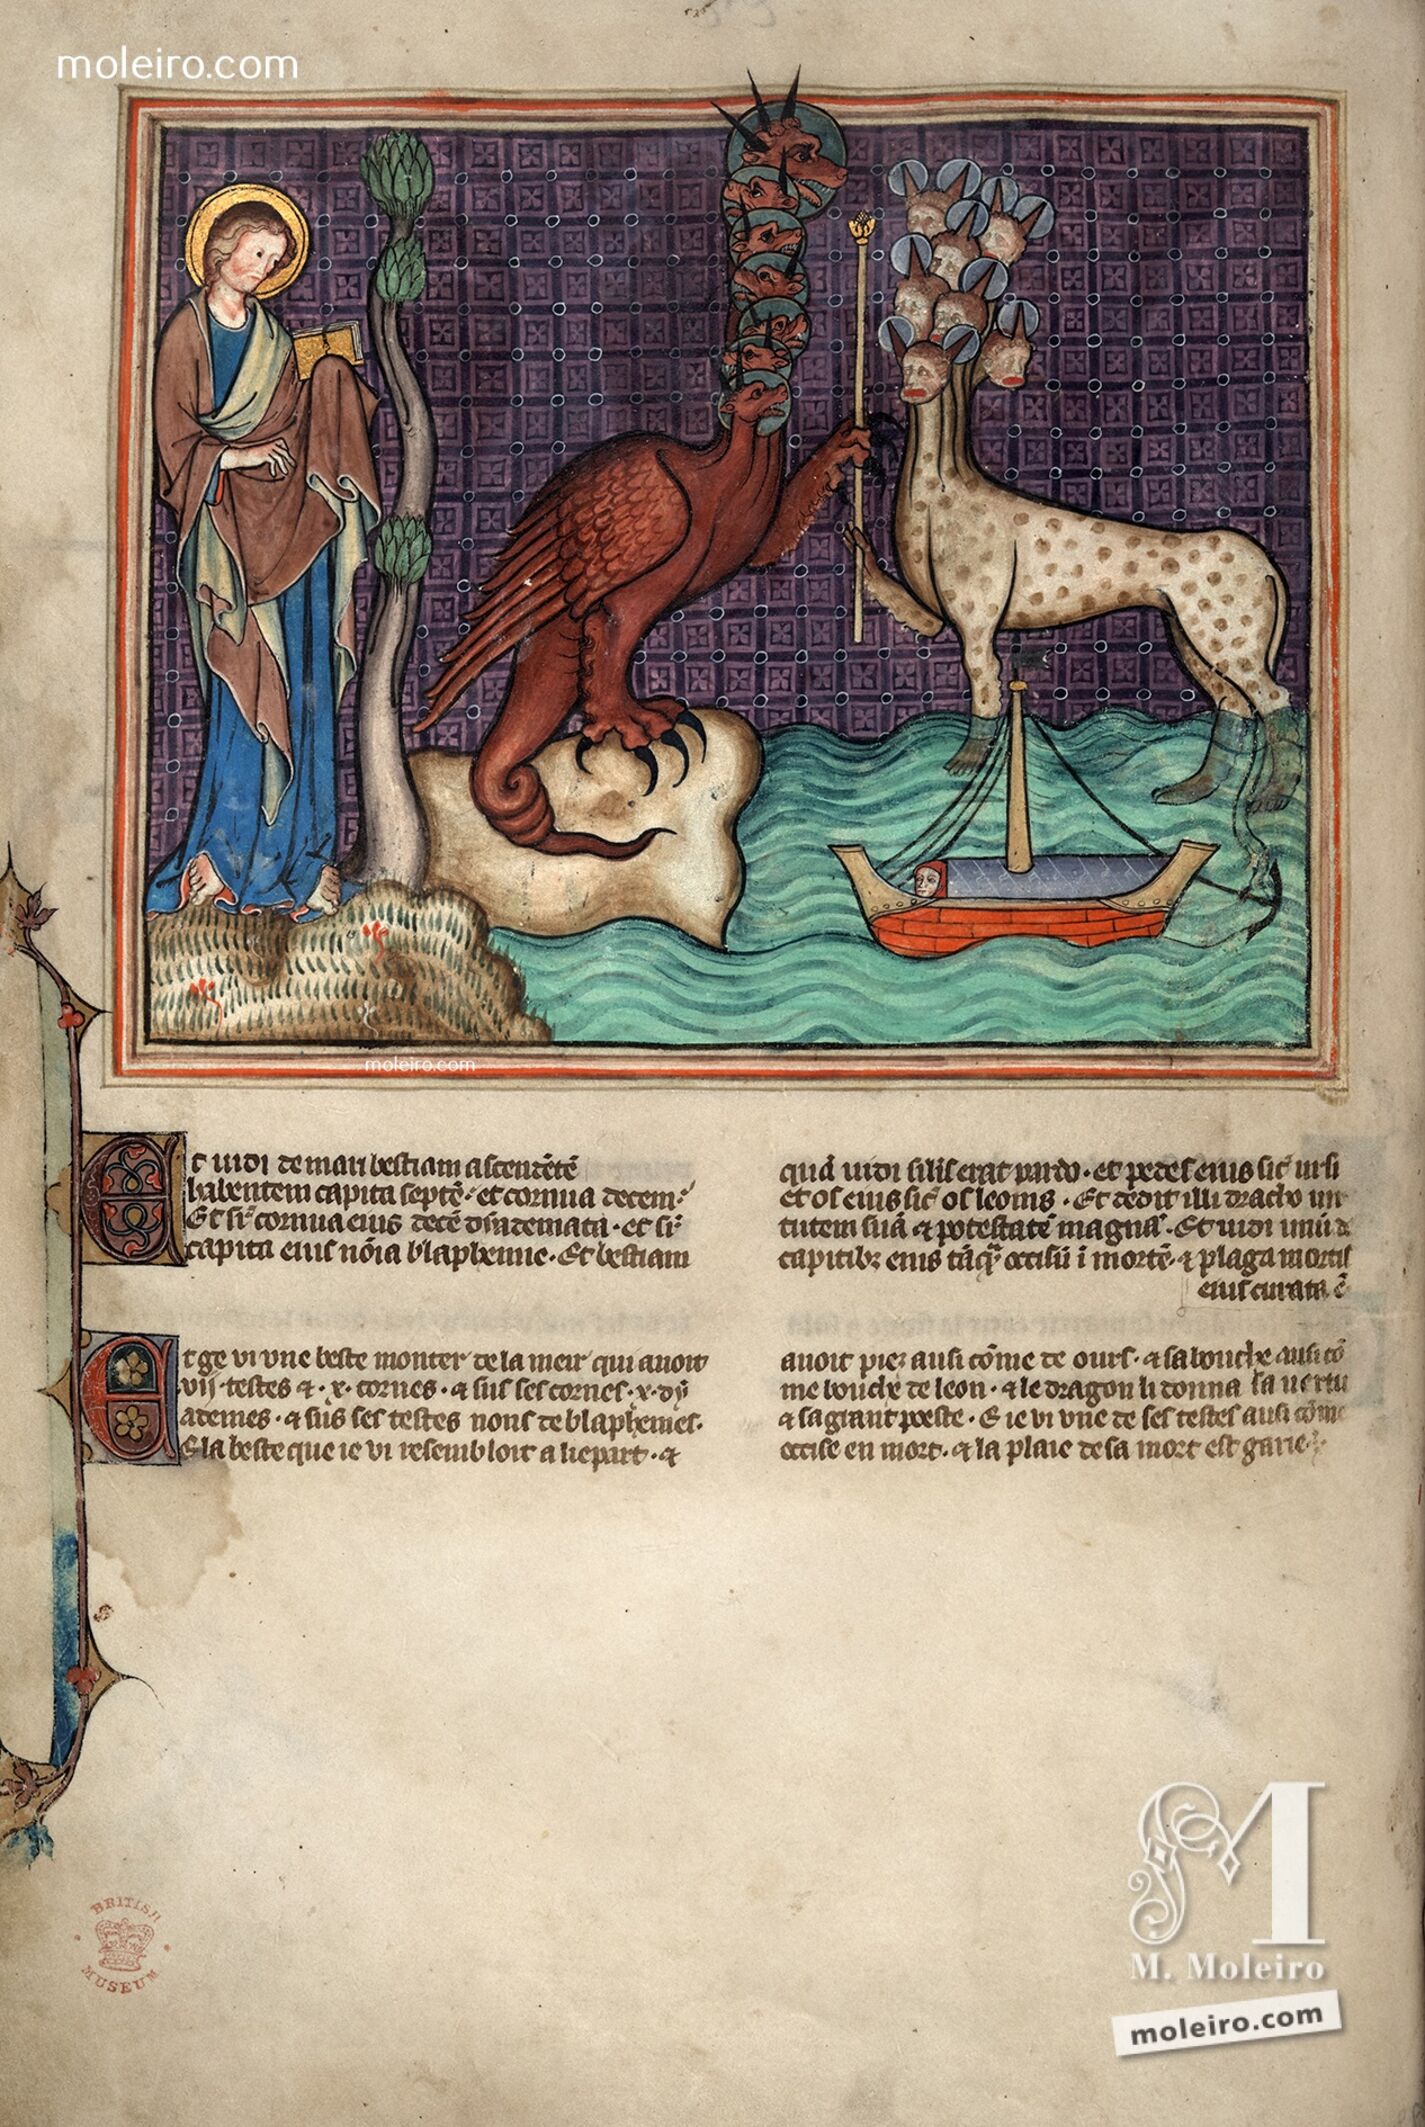 moleiro.com
moleiro.com
Et uidi de mari bestiam ascendẽtẽ
habentem capita septẽ · et cornua decem ·
Et sr̃ cornua eius decẽ dyademata · et sr̃
capita eius nõia blasphemie · Et bestiam
quã uidi silis erat pardo · et pedes eius sic̃ ursi
et os eius sic̃ os leonis · Et dedit illi draco uir
tutem suã ⁊ potestatẽ magnã · Et uidi unũ de
capitibꝫ eius tãq̃ȝ occisũ ĩ mortẽ · ⁊ plaga mortis
eius curata ẽ
Et ge vi vne beste monter de la meir qui auoit
.vij. testes ⁊ .x. cornes · ⁊ sus ses cornes .x. dy
ademes · ⁊ sus ses testes nons de blasphemes ·
E la beste que ie vi resembloit a liepart · ⁊
auoit piez ausi cõme de ours · ⁊ sa bouche ausi cõ
me bouche de leon · ⁊ le dragon li donna sa uertu
⁊ sa grant poeste · E ie vi vne de ses testes ausi cõme
occise en mort · ⁊ la plaie de sa mort est garie ·
BRITISH
MUSEUM
M
M. Moleiro
moleiro.com